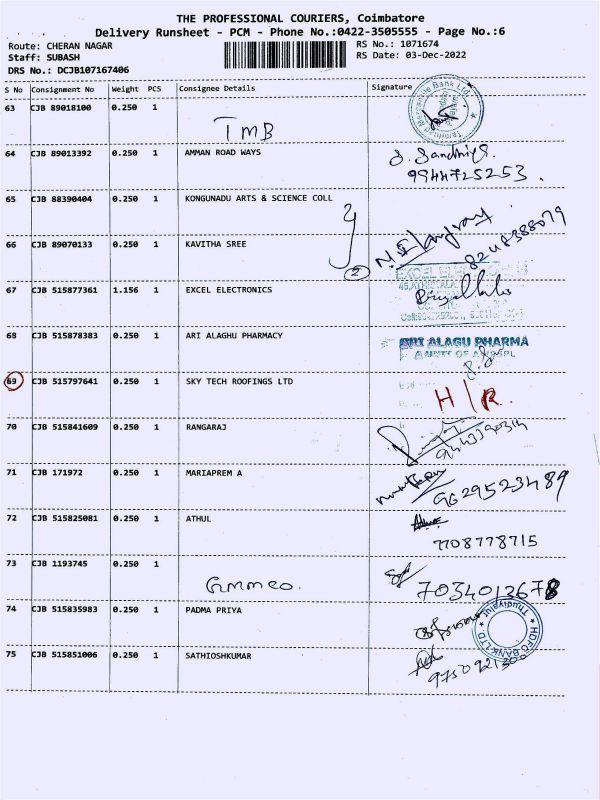 THE PROFESSIONAL COURIERS, Coimbatore
Delivery Runsheet - PCM - Phone No.:0422-3505555 - Page No.:6
Route: CHERAN NAGAR RS No.: 1071674
Staff: SUBASH RS Date: 03-Dec-2022
DRS No.: DCJB107167406
S No Consignment No Weight PCS Consignee Details Signature
63 CJB 89018100 0.250 1
TMB
Tamilnad Mercantile Bank Ltd.
64 CJB 89013392 0.250 1 AMMAN ROAD WAYS
9944725253.
65 CJB 88390404 0.250 1 KONGUNADU ARTS & SCIENCE COLL
66 CJB 89070133 0.250 1 KAVITHA SREE
8248388079
2
EXCEL ELECTRONICS
67 CJB 515877361 1.156 1 EXCEL ELECTRONICS
68 CJB 515878383 0.250 1 ARI ALAGHU PHARMACY
ARI ALAGU PHARMA
69 CJB 515797641 0.250 1 SKY TECH ROOFINGS LTD
H/R
70 CJB 515841609 0.250 1 RANGARAJ
71 CJB 171972 0.250 1 MARIAPREM A
9629523489
72 CJB 515825081 0.250 1 ATHUL
7708778715
73 CJB 1193745 0.250 1
7034012678
74 CJB 515835983 0.250 1 PADMA PRIYA
Thudiyalur
HDFC BANK LTD
75 CJB 515851006 0.250 1 SATHIOSHKUMAR